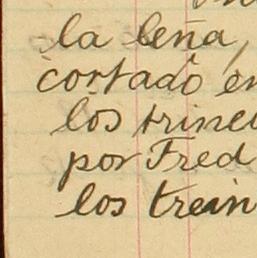 la leña,
cortado en
los trinei
por Fred
los trein